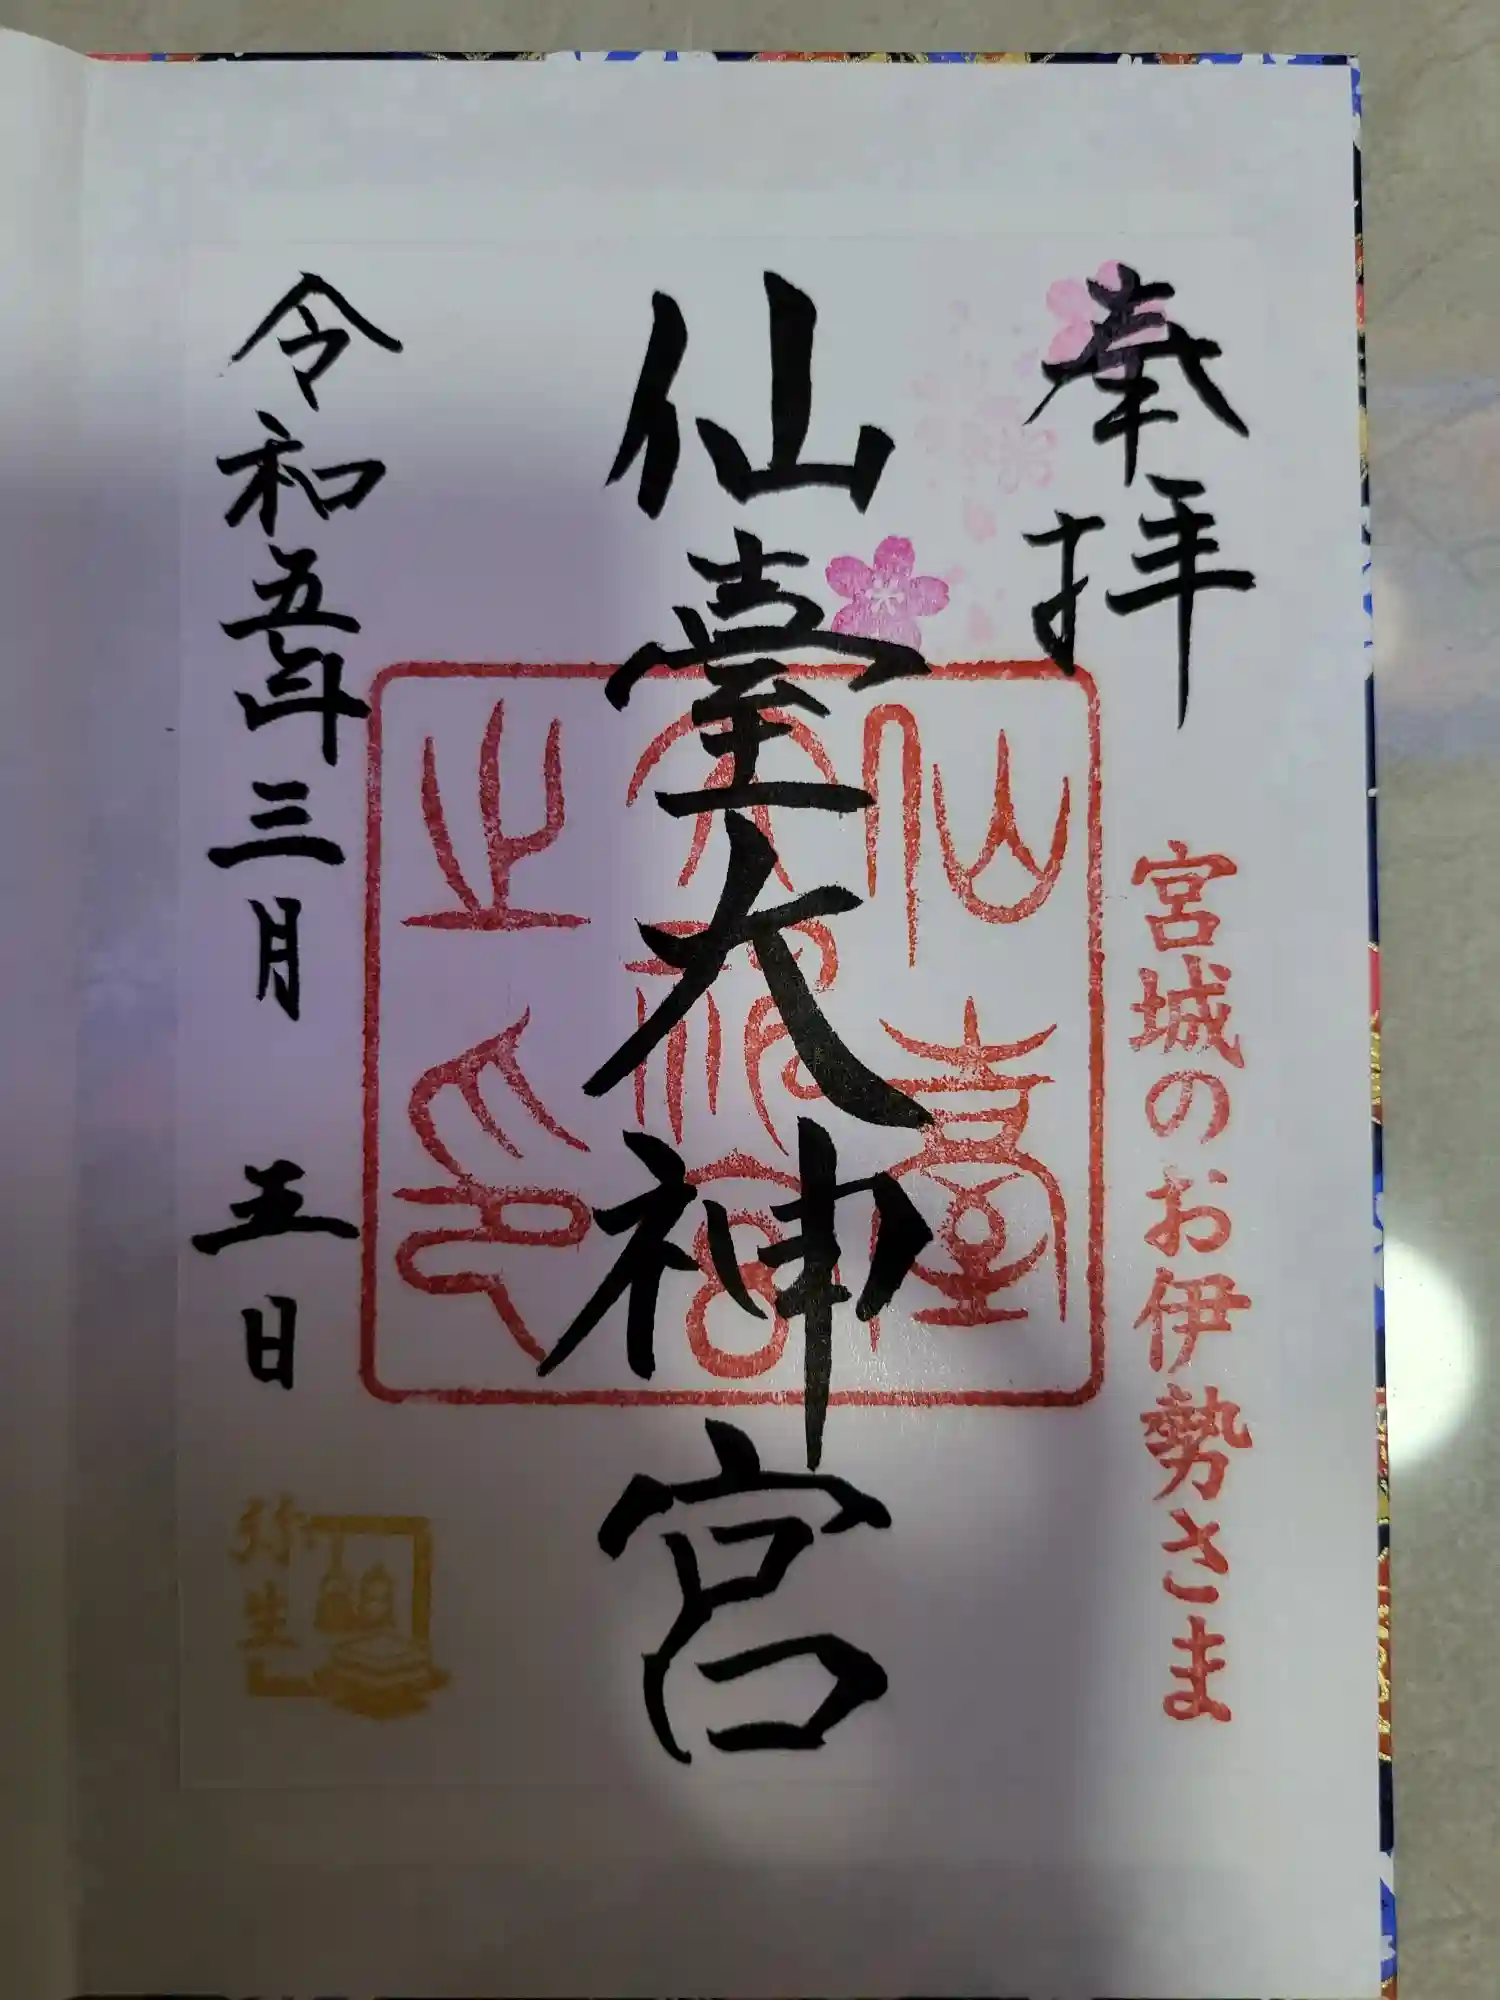 奉拝
宮城のお伊勢さま
仙臺大神宮
仙臺
大神宮
之印
令和五年三月五日
弥生